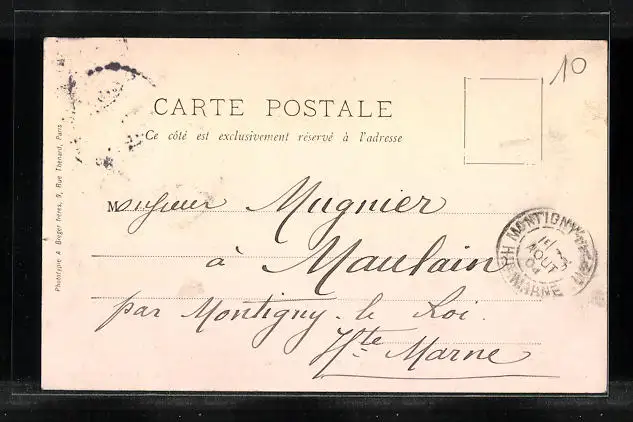 10
CARTE POSTALE
Ce côté est exclusivement réservé à l'adresse
Monsieur Mugnier
à Maulain
par Montigny-le Roi.
Hte Marne
MONTIGNY
AOUT
04
MARNE
Phototypie A Berger frères, 9, Rue Thénard, Paris